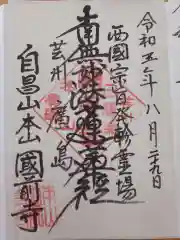 令和五年八月二十九日
西國宗旨日蓮霊場
南無妙法蓮華経
芸州廣島
自昌山本山國前寺